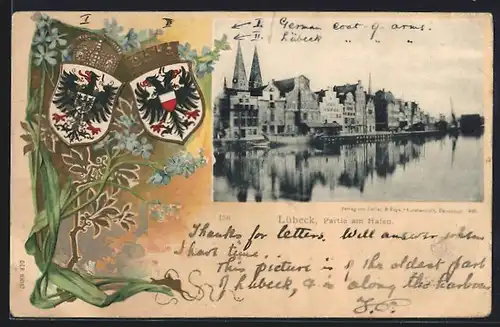 I II
← I. German coat of arms.
← II. Lübeck " " "
Lübeck, Partie am Hafen.
Thanks for letters. Will answer when
I have time..
This picture is of the oldest part
of Lubeck, & is along the harbour